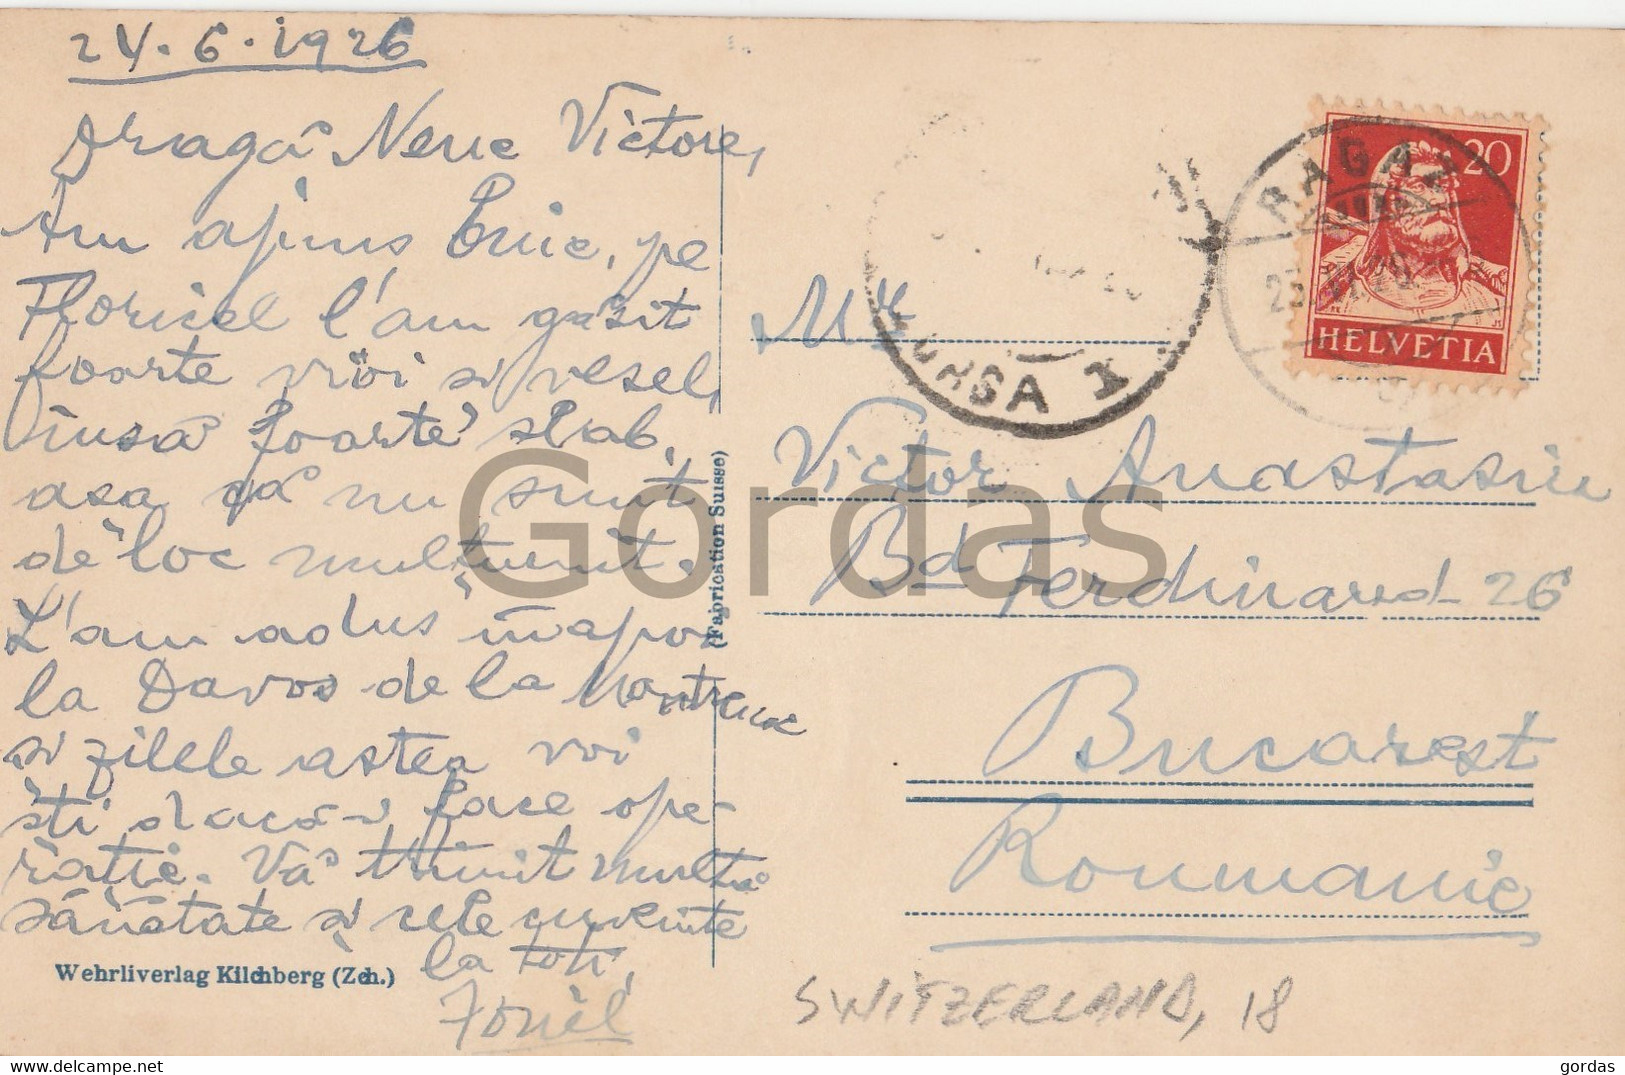 24.6.1926
Dragă Nene Victore,
Am ajuns bine, pe
Floricel l'am găsit
foarte vioi si vesel,
însă foarte slab,
asa că nu sunt
de loc multumit.
L'am adus înapoi
la Davos de la Montreux
si zilele astea voi
sti dacă-i face ope-
ratie. Vă trimit multă
sănătate si cele cuvenite
la toti,
Jonel
Wehrliverlag Kilchberg (Zch.)
(Fabrication Suisse)
Gordas
RAGAZ
20
HELVETIA
Mr
Victor Anastasiu
Bd Ferdinand 26
Bucarest
Roumanie
SWITZERLAND, 18
https://www.delcampe.net
gordas